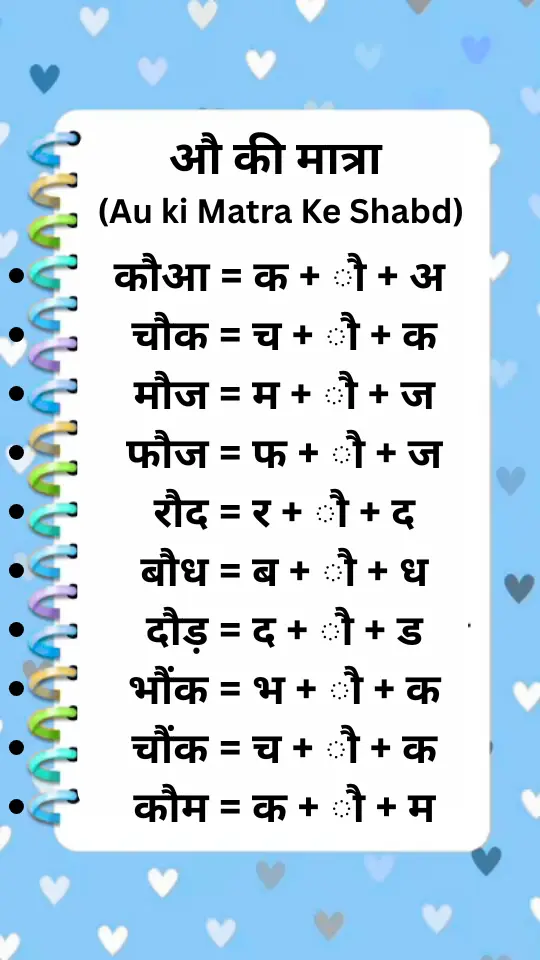 औ की मात्रा
(Au ki Matra Ke Shabd)
• कौआ = क + ौ + अ
• चौक = च + ौ + क
• मौज = म + ौ + ज
• फौज = फ + ौ + ज
• रौद = र + ौ + द
• बौध = ब + ौ + ध
• दौड़ = द + ौ + ड
• भौंक = भ + ौ + क
• चौंक = च + ौ + क
• कौम = क + ौ + म